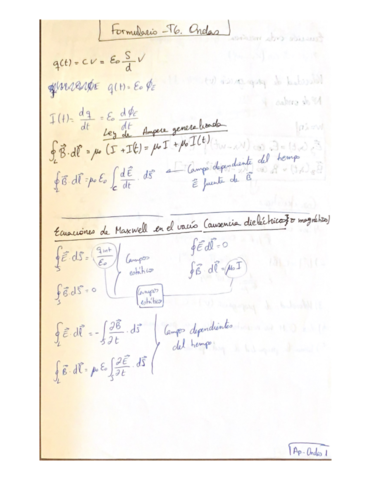 Formulario - T6. Ondas
q(t) = C V = ε₀ S/d V
q(t) = ε₀ Φ_E
I(t) = dq/dt = ε₀ dΦ_E/dt
Ley de Ampere generalizada
∮ B⃗ · dl⃗ = μ₀ (I + I(t)) = μ₀ I + μ₀ I(t)
∮ B⃗ dl⃗ = μ₀ ε₀ ∫ dE⃗/dt · dS⃗ Campo dependiente del tiempo
E⃗ fuente de B⃗
Ecuaciones de Maxwell en el vacío (ausencia dieléctricos magnéticos)
∮ E⃗ dS⃗ = q_int/ε₀ Campos estáticos ∮ E⃗ dl⃗ = 0
∮ B⃗ dS⃗ = 0 Campos estáticos ∮ B⃗ dl⃗ = μ₀ I
∮ E⃗ dl⃗ = - ∫ ∂B⃗/∂t · dS⃗ Campos dependientes
∮ B⃗ dl⃗ = μ₀ ε₀ ∫ ∂E⃗/∂t · dS⃗ del tiempo
Ap-Ondas 1